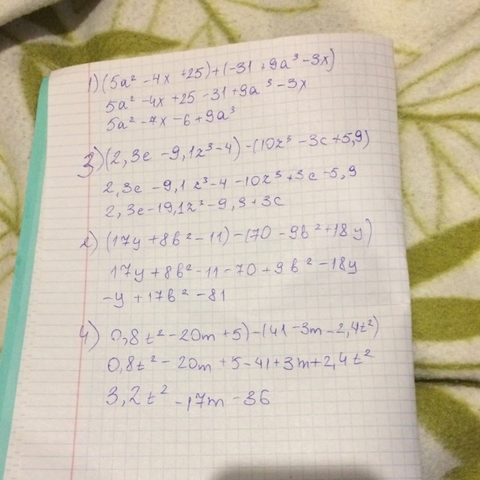 1) (5a² - 4x + 25) + (-31 + 9a³ - 3x)
5a² - 4x + 25 - 31 + 9a³ - 3x
5a² - 7x - 6 + 9a³
3) (2,3c - 9,1z³ - 4) - (10z⁵ - 3c + 5,9)
2,3c - 9,1z³ - 4 - 10z⁵ + 3c - 5,9
2,3c - 19,1z² - 9,9 + 3c
2) (17y + 8b² - 11) - (70 - 9b² + 18y)
17y + 8b² - 11 - 70 + 9b² - 18y
-y + 17b² - 81
4) 0,8z² - 20m + 5) - (41 - 3m - 2,4z²)
0,8z² - 20m + 5 - 41 + 3m + 2,4z²
3,2z² - 17m - 36